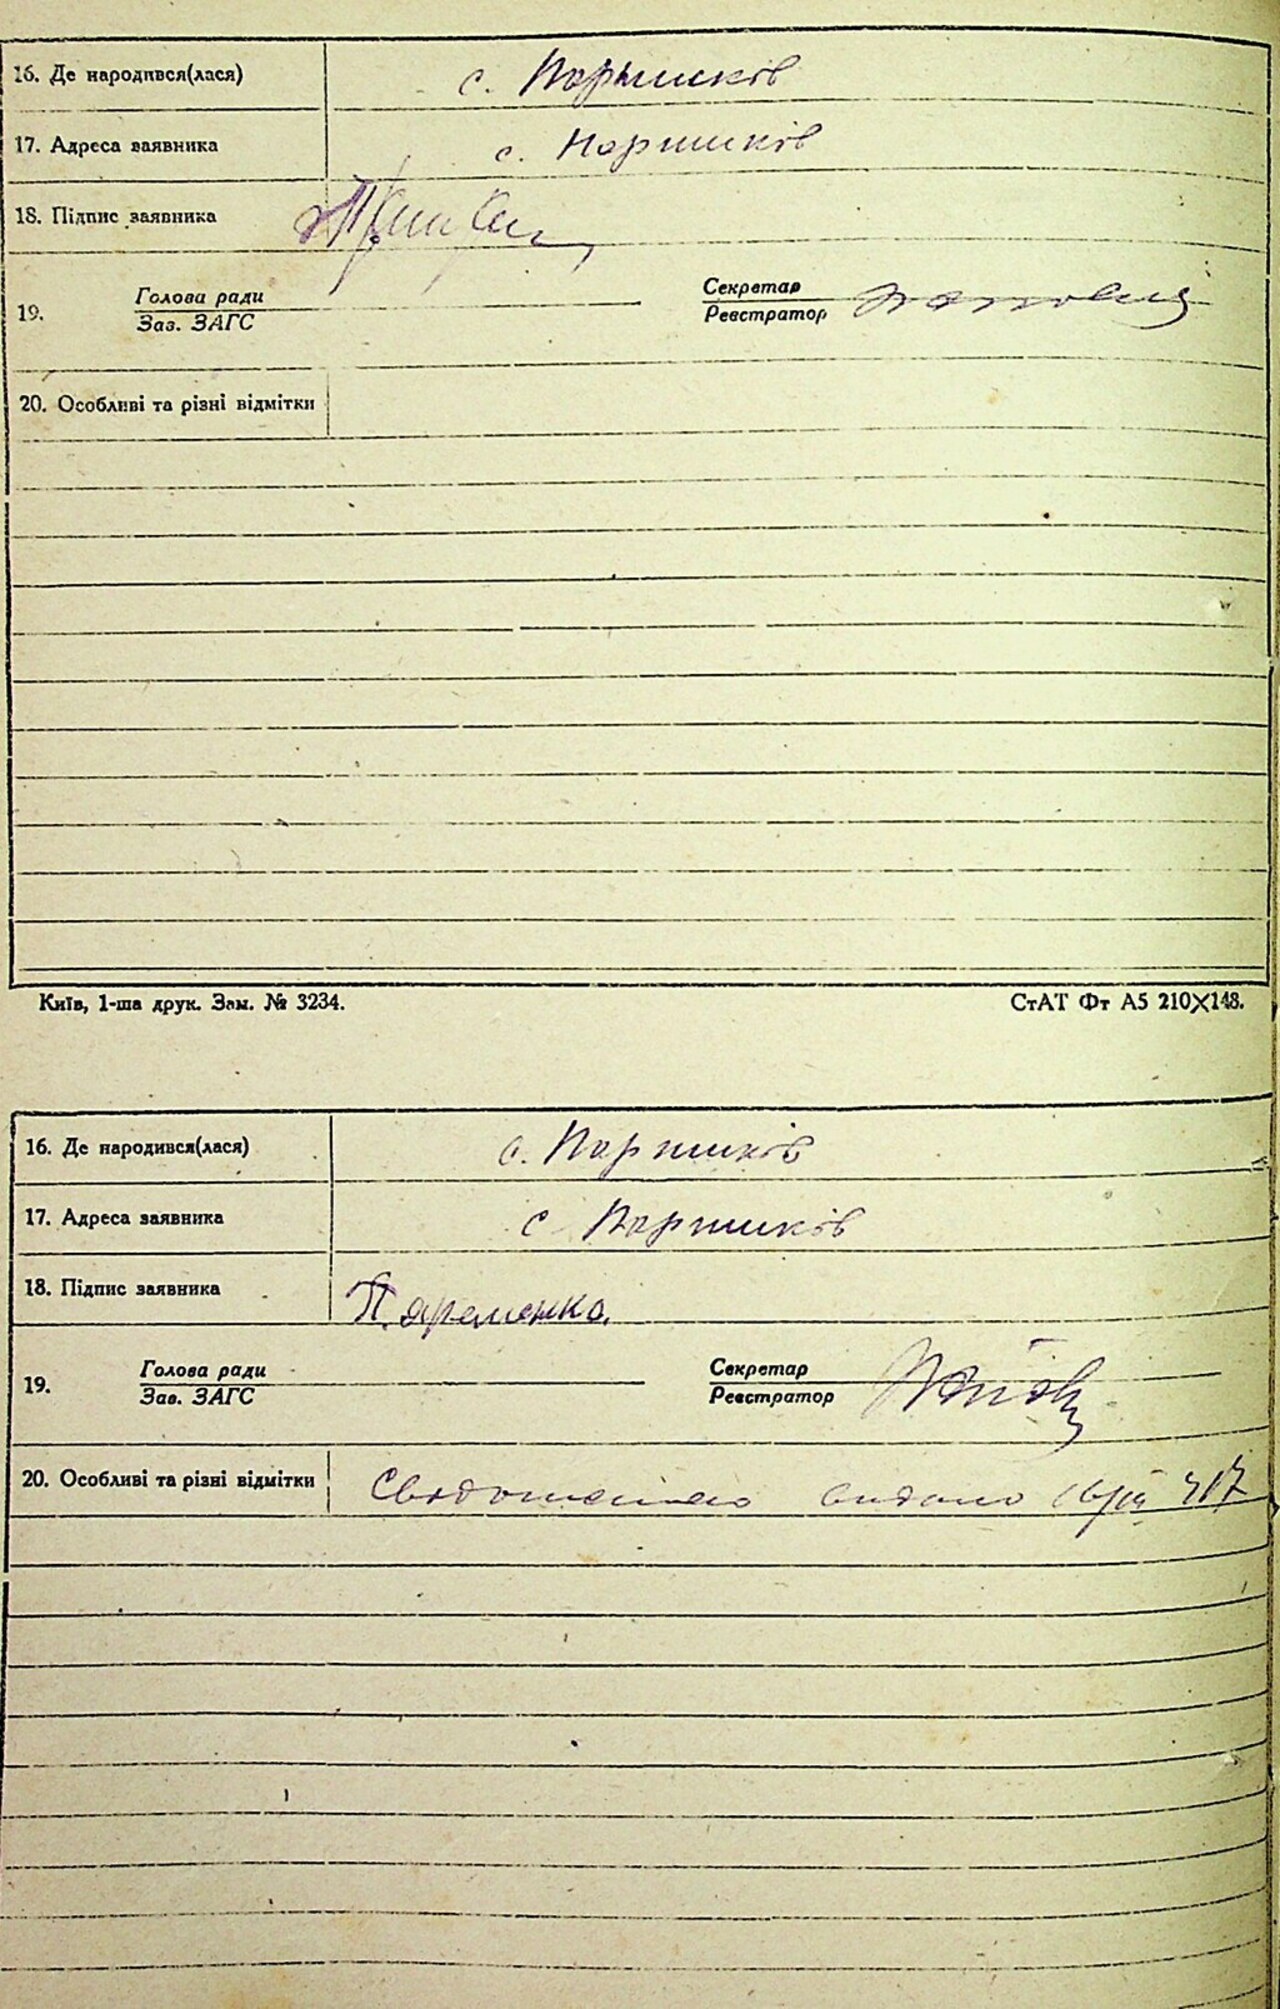 16. Де народився(лася) с. Паршиків
17. Адреса заявника с. Паршиків
18. Підпис заявника
Голова ради Секретар
19.
Зав. ЗАГС Реєстратор
20. Особливі та різні відмітки
Київ, 1-ша друк. Зам. № 3234. СтАТ Фт А5 210X148.
16. Де народився(лася) с. Паршиків
17. Адреса заявника с Паршиків
18. Підпис заявника П. яременко.
Голова ради Секретар
19.
Зав. ЗАГС Реєстратор
20. Особливі та різні відмітки видано